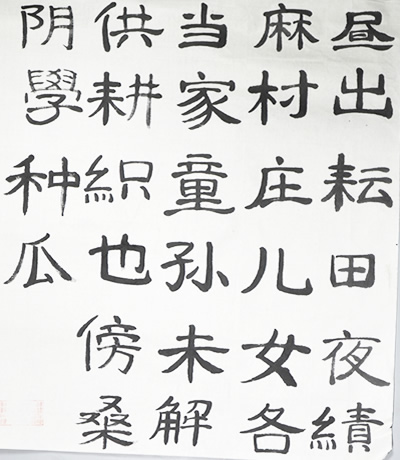 昼出耘田夜績
麻村庄儿女各
当家童孙未解
供耕織也傍桑
阴學种瓜